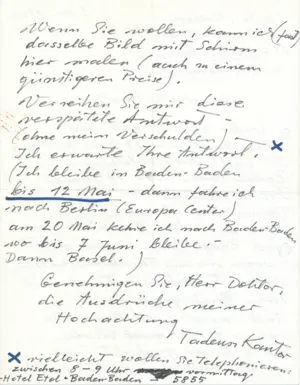 Wenn Sie wollen, kann ich (fast)
dasselbe Bild mit Schirm
hier malen (auch zu einem
günstigeren Preise).
Verzeihen Sie mir diese
verspätete Antwort –
(ohne mein Verschulden) –
Ich erwarte Ihre Antwort. x
(Ich bleibe in Baden-Baden
bis 12 Mai – dann fahre ich
nach Berlin (Europa Center)
am 20 Mai kehre ich nach Baden-Baden
wo bis 7 Juni bleibe. –
Dann Basel.)
Genehmigen Sie, Herr Doktor,
die Ausdrücke meiner
Hochachtung
Tadeusz Kantor
x vielleicht wollen Sie telephonieren:
zwischen 8–9 Uhr vormittag
Hotel Etol – Baden-Baden 5855